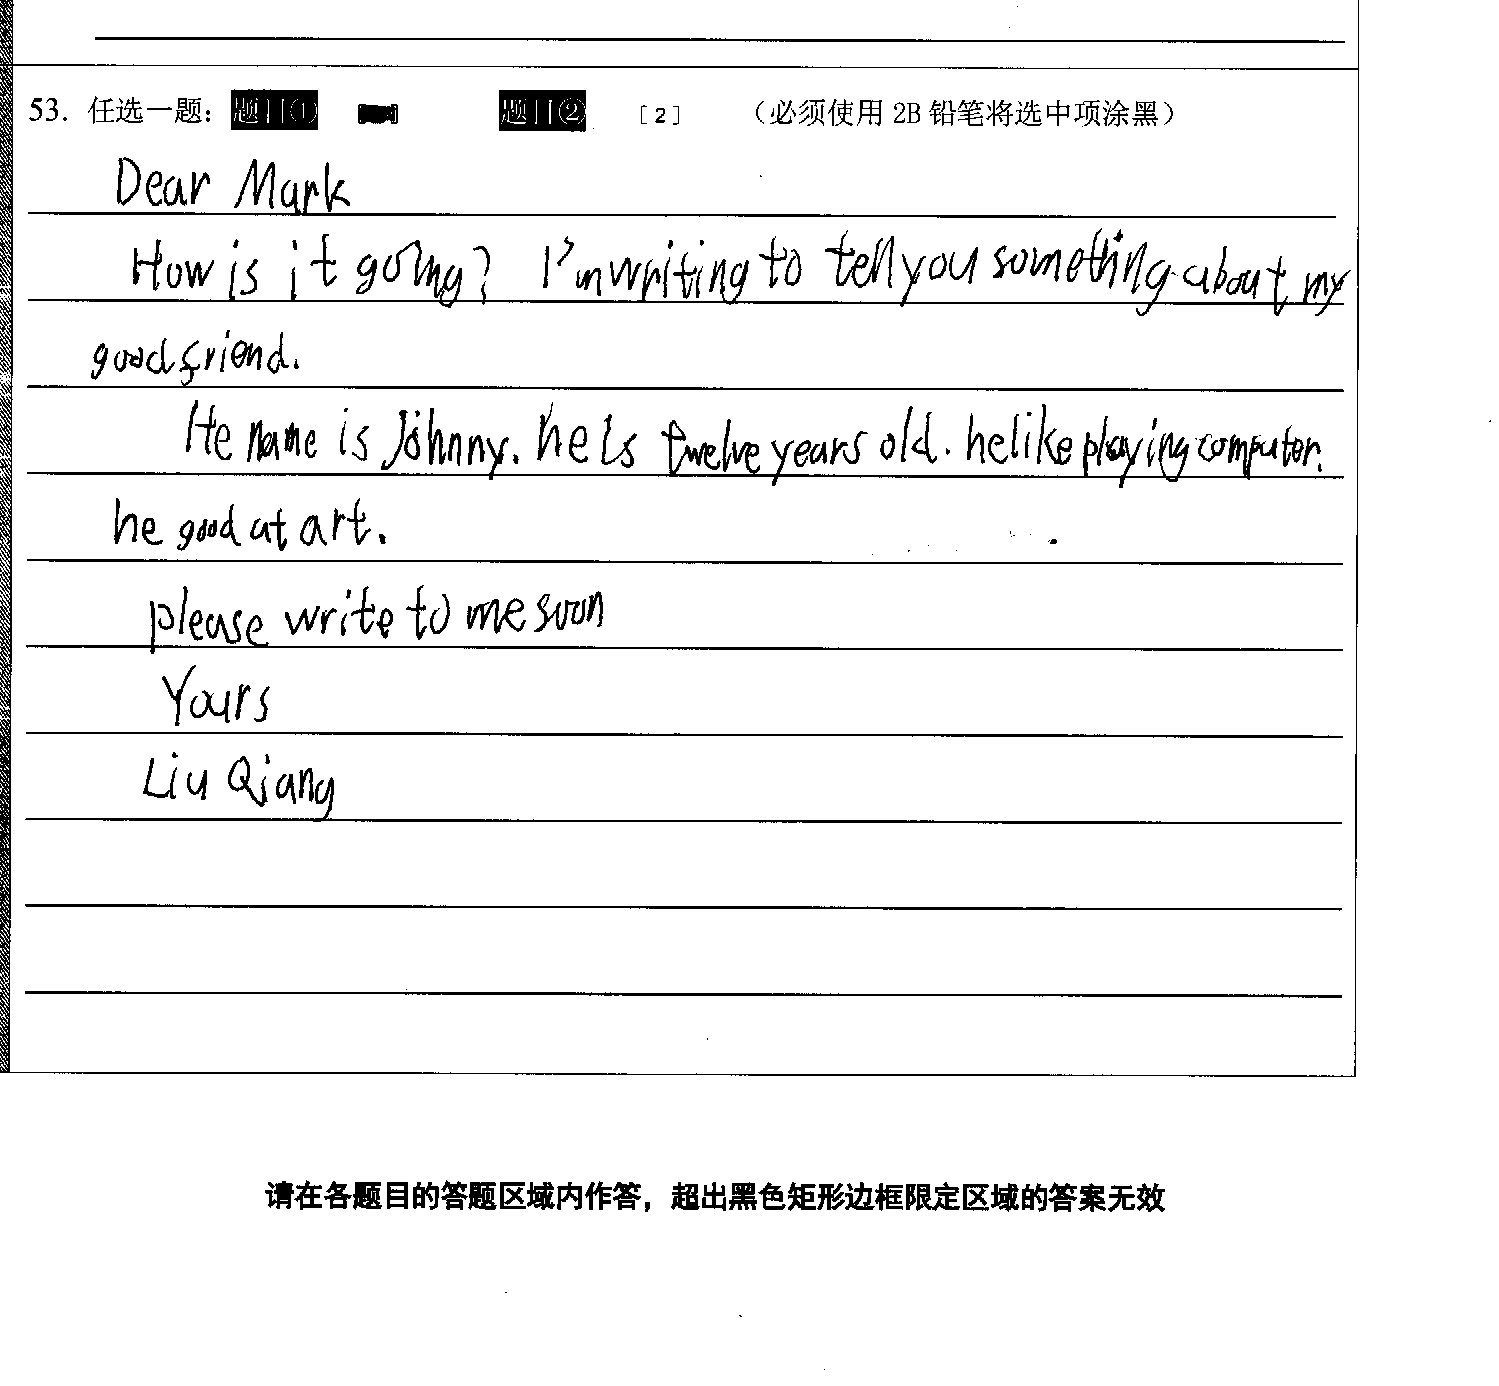 53. 任选一题： 题目① 题目② [2] （必须使用 2B 铅笔将选中项涂黑）
Dear Mark
How is it going? I'm writing to tell you something about my
good friend.
He name is Johnny. he is twelve years old. he like playing computer.
he good at art.
please write to me soon
Yours
Liu Qiang
请在各题目的答题区域内作答，超出黑色矩形边框限定区域的答案无效